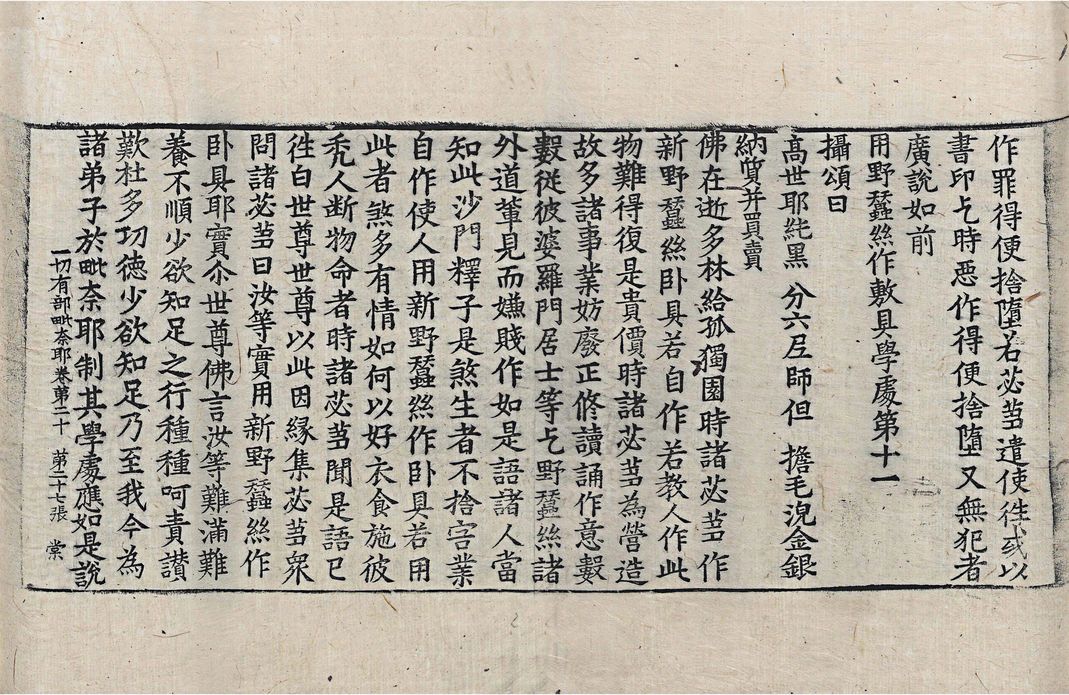 作罪得便捨墮若苾芻遣使徃或以
書印乞時惡作得便捨墮又無犯者
廣說如前
用野蠶絲作敷具學處第十一
攝頌曰
高世耶純黑 分六尼師但 擔毛浼金銀
納質并買賣
佛在逝多林給孤獨園時諸苾芻作
新野蠶絲卧具若自作若教人作此
物難得復是貴價時諸苾芻為營造
故多諸事業妨廢正修讀誦作意數
數從彼婆羅門居士等乞野蠶絲諸
外道輩見而嫌賤作如是語諸人當
知此沙門釋子是煞生者不捨害業
自作使人用新野蠶絲作卧具若用
此者煞多有情如何以好衣食施彼
禿人断物命者時諸苾芻聞是語已
徃白世尊世尊以此因緣集苾芻衆
問諸苾芻曰汝等實用新野蠶絲作
卧具耶實尒世尊佛言汝等難滿難
養不順少欲知足之行種種呵責讚
歎杜多功德少欲知足乃至我今為
諸弟子於毗奈耶制其學處應如是說
一切有部毗奈耶卷第二十 第二十七張 棠